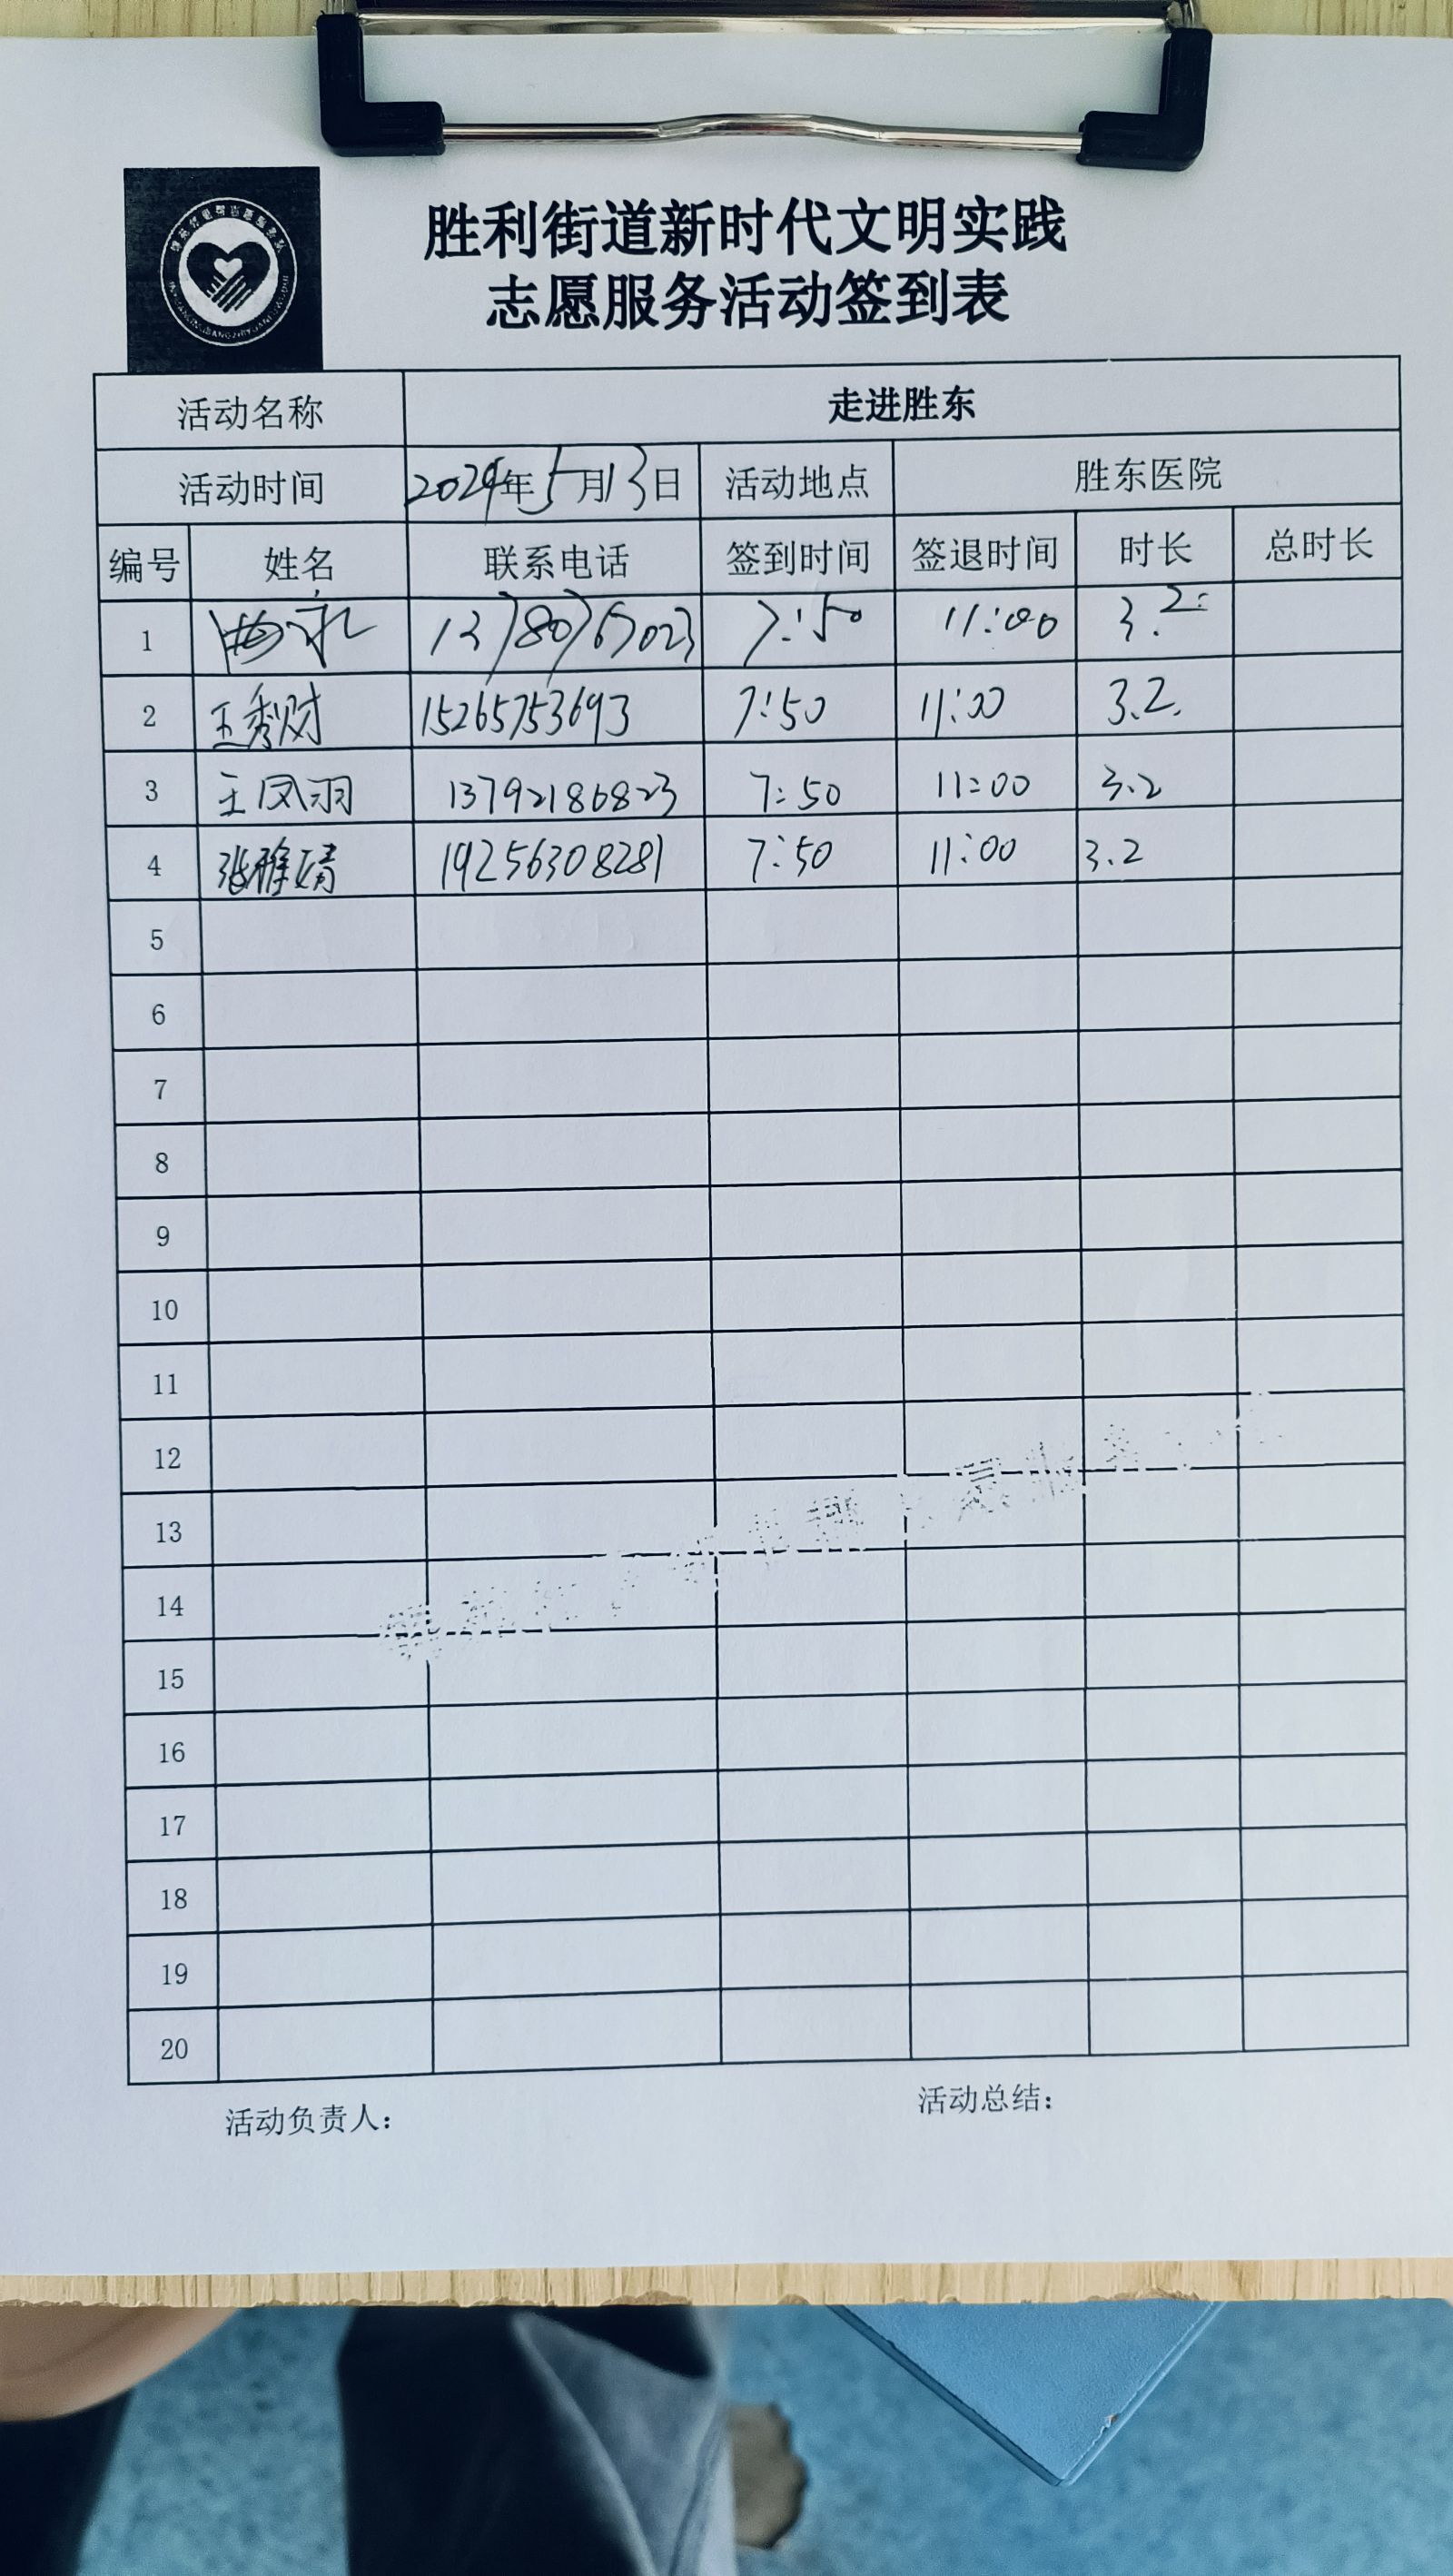 胜利街道新时代文明实践
志愿服务活动签到表
活动名称 走进胜东
活动时间 2024年5月13日 活动地点 胜东医院
编号 姓名 联系电话 签到时间 签退时间 时长 总时长
1 13780767023 7:50 11:00 3.2
2 王秀财 15265753693 7:50 11:00 3.2.
3 王凤羽 13792186823 7:50 11:00 3.2
4 张雅婧 19256308281 7:50 11:00 3.2
5
6
7
8
9
10
11
12
13
14
15
16
17
18
19
20
活动负责人： 活动总结：